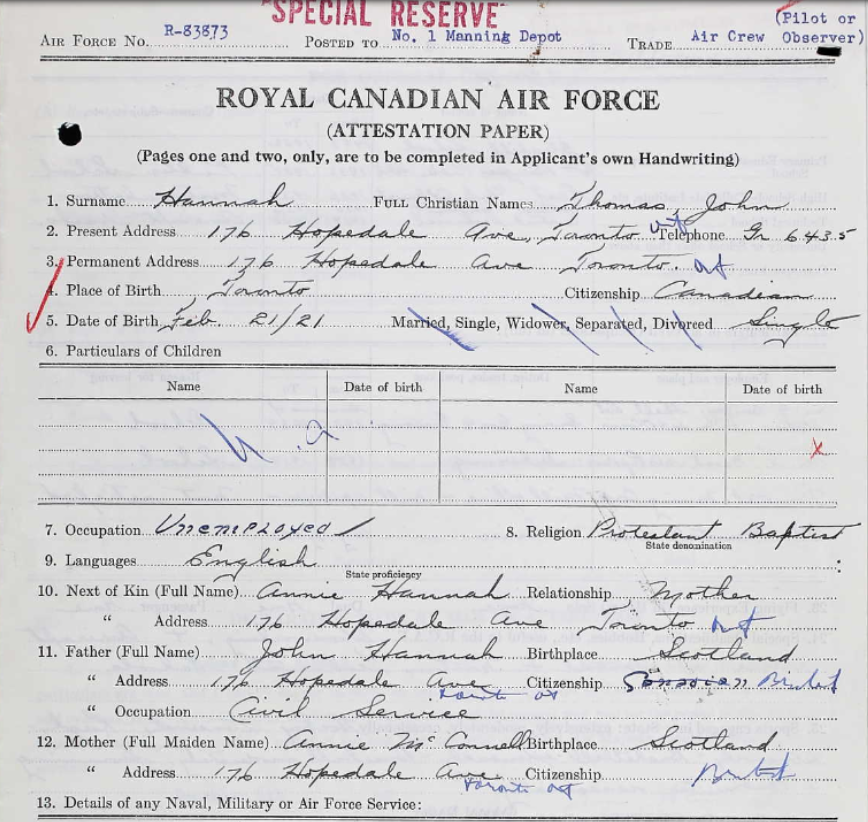 "SPECIAL RESERVE"
(Pilot or
AIR FORCE NO. R-83873 POSTED TO No. 1 Manning Depot TRADE Air Crew Observer)
ROYAL CANADIAN AIR FORCE
(ATTESTATION PAPER)
(Pages one and two, only, are to be completed in Applicant's own Handwriting)
1. Surname Hannah FULL Christian Names Thomas, John
2. Present Address 176 Hopedale Ave, Toronto Ont Telephone Gr 6435
3. Permanent Address 176 Hopedale Ave Toronto. Ont
4. Place of Birth Toronto Citizenship Canadian
5. Date of Birth Feb. 21/21 Married, Single, Widower, Separated, Divorced Single
6. Particulars of Children
Name Date of birth Name Date of birth
N.a
x
7. Occupation Unemployed 8. Religion Protestant Baptist
State denomination
9. Languages English
State proficiency
10. Next of Kin (Full Name) Annie Hannah Relationship Mother
" Address 176 Hopedale Ave Toronto Ont
11. Father (Full Name) John Hannah Birthplace Scotland
" Address 176 Hopedale Ave Citizenship Canadian British
Toronto Ont
" Occupation Civil Service
12. Mother (Full Maiden Name) Annie McConnell Birthplace Scotland
" Address 176 Hopedale Ave Citizenship British
Toronto Ont
13. Details of any Naval, Military or Air Force Service: